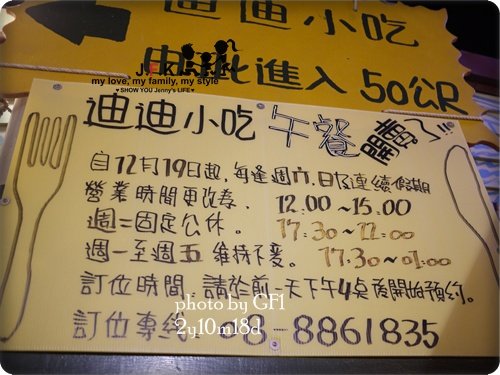 迪迪小吃
由此進入 50公尺
JF Kids
my love, my family, my style
♥SHOW YOU Jenny's LIFE♥
迪迪小吃 午餐
自12月19日起，每逢週六、日及連續假期
營業時間更改為 12:00~15:00
週二固定公休。 17:30~
週一至週五維持不變。 17:30~01:00
訂位時間，請於前一天下午4點後開始預約。
photo by GF1
2y10m18d
訂位專線 08-8861835